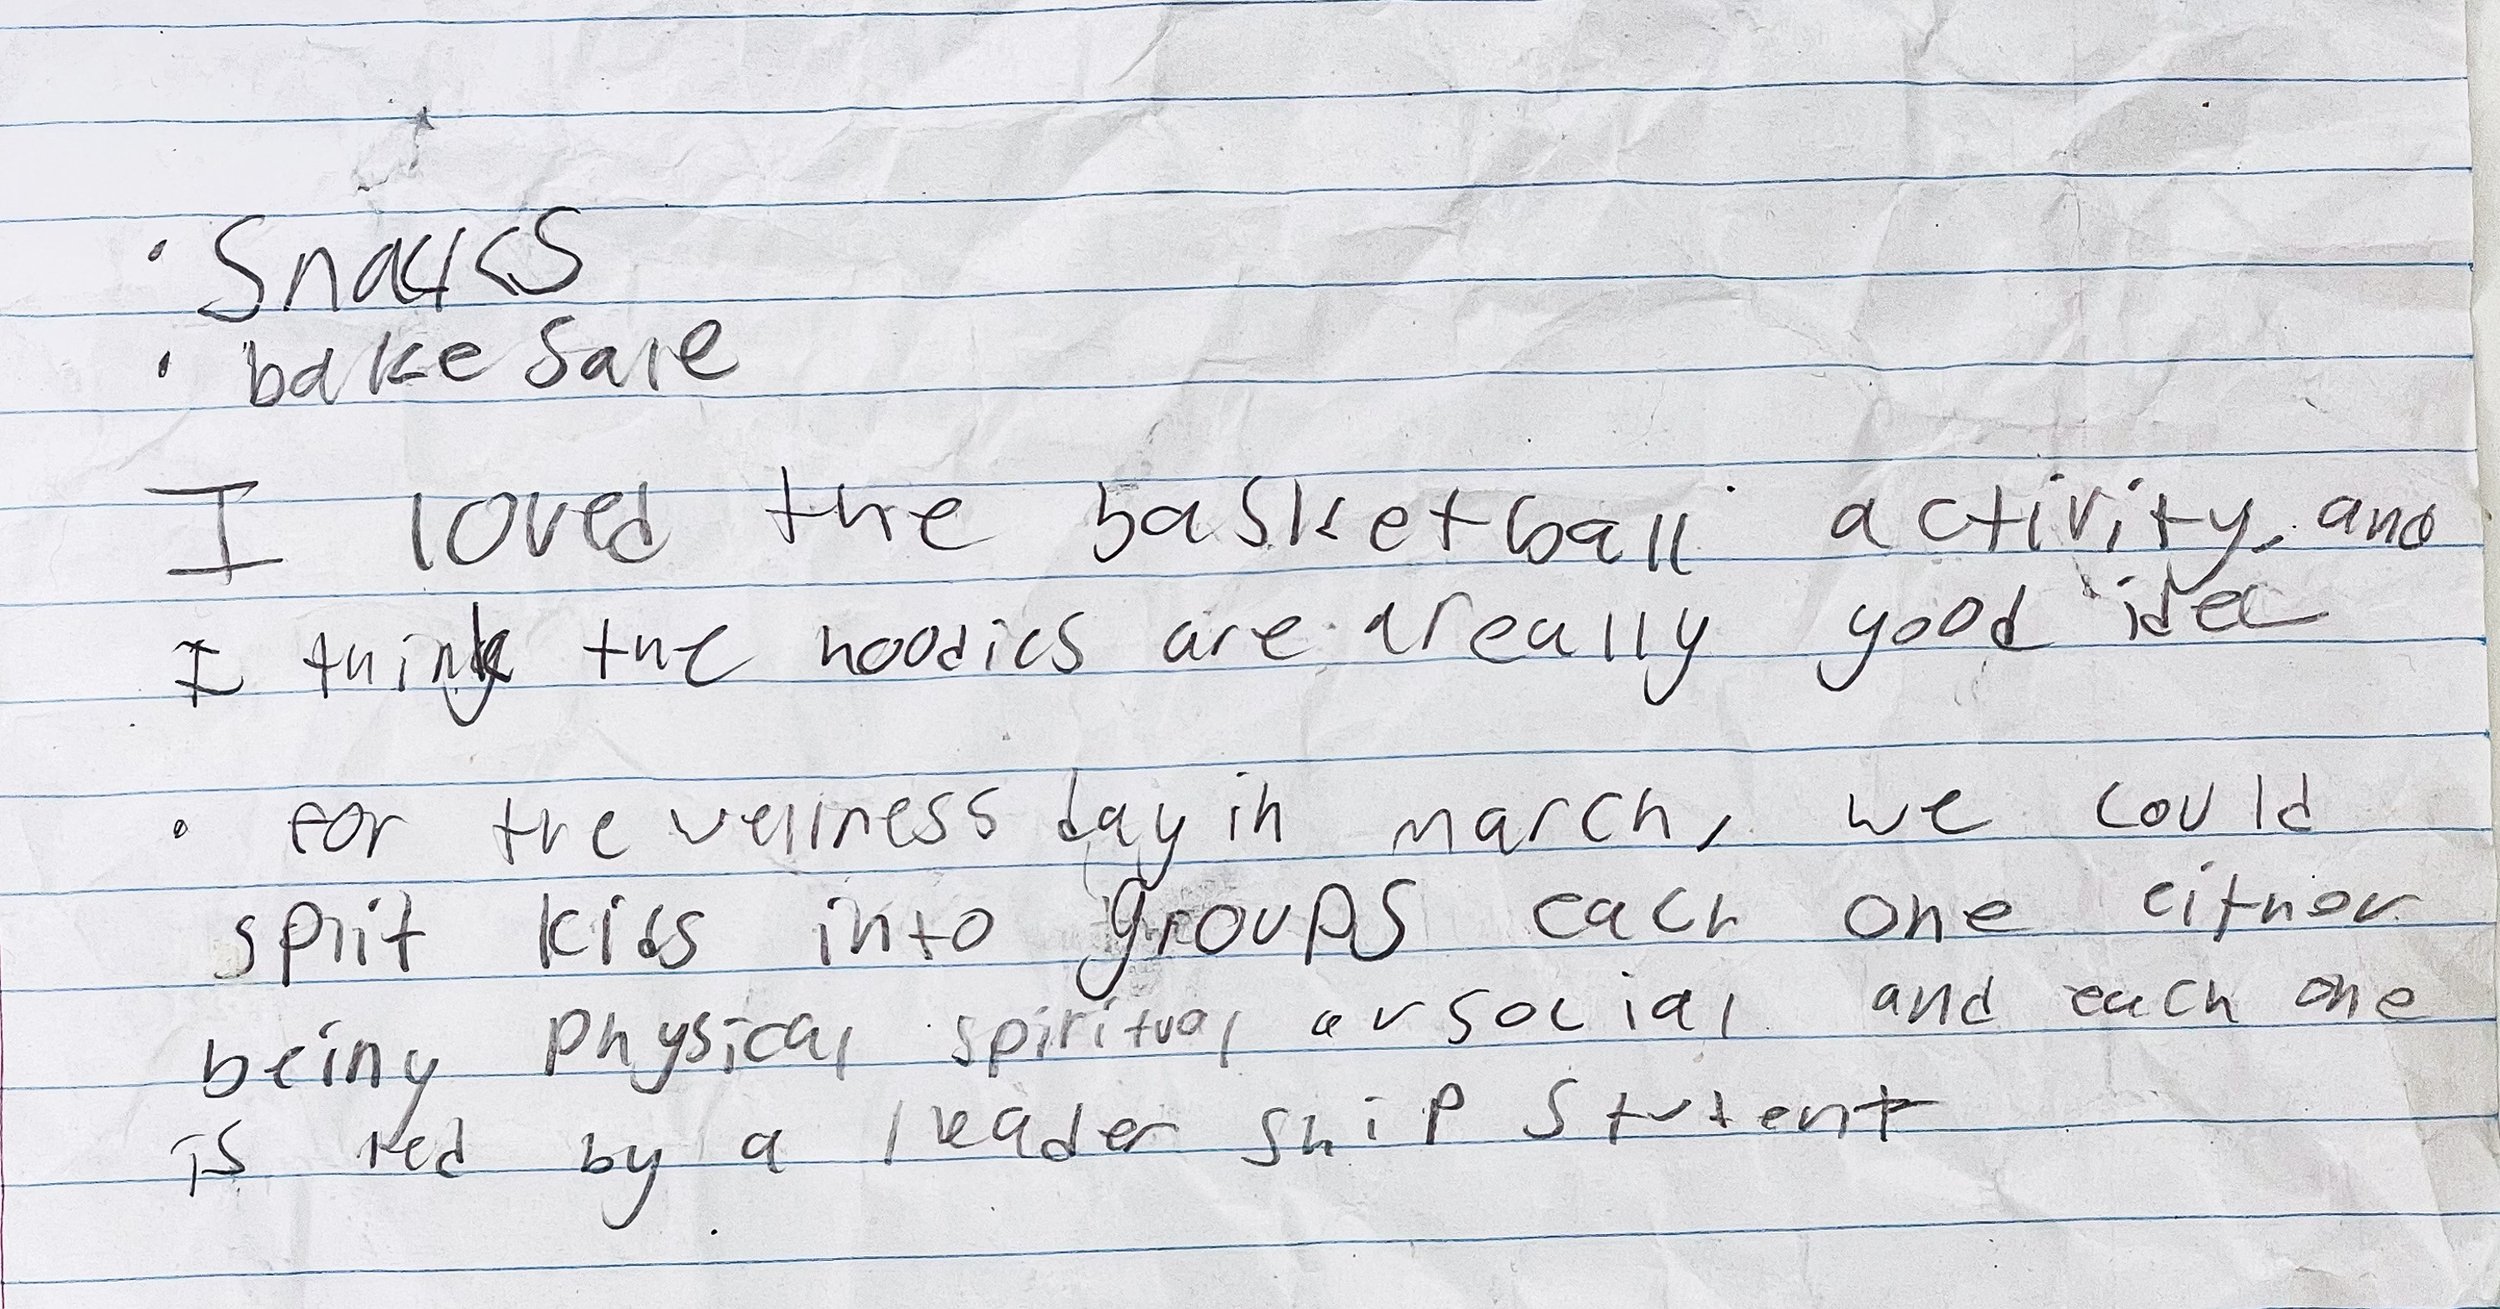 • Snacks
• bake sale
I loved the basketball activity, and
I think the hoodies are a really good idea
• for the wellness day in march, we could
split kids into groups each one either
being physical spiritual or social and each one
is led by a leader ship student